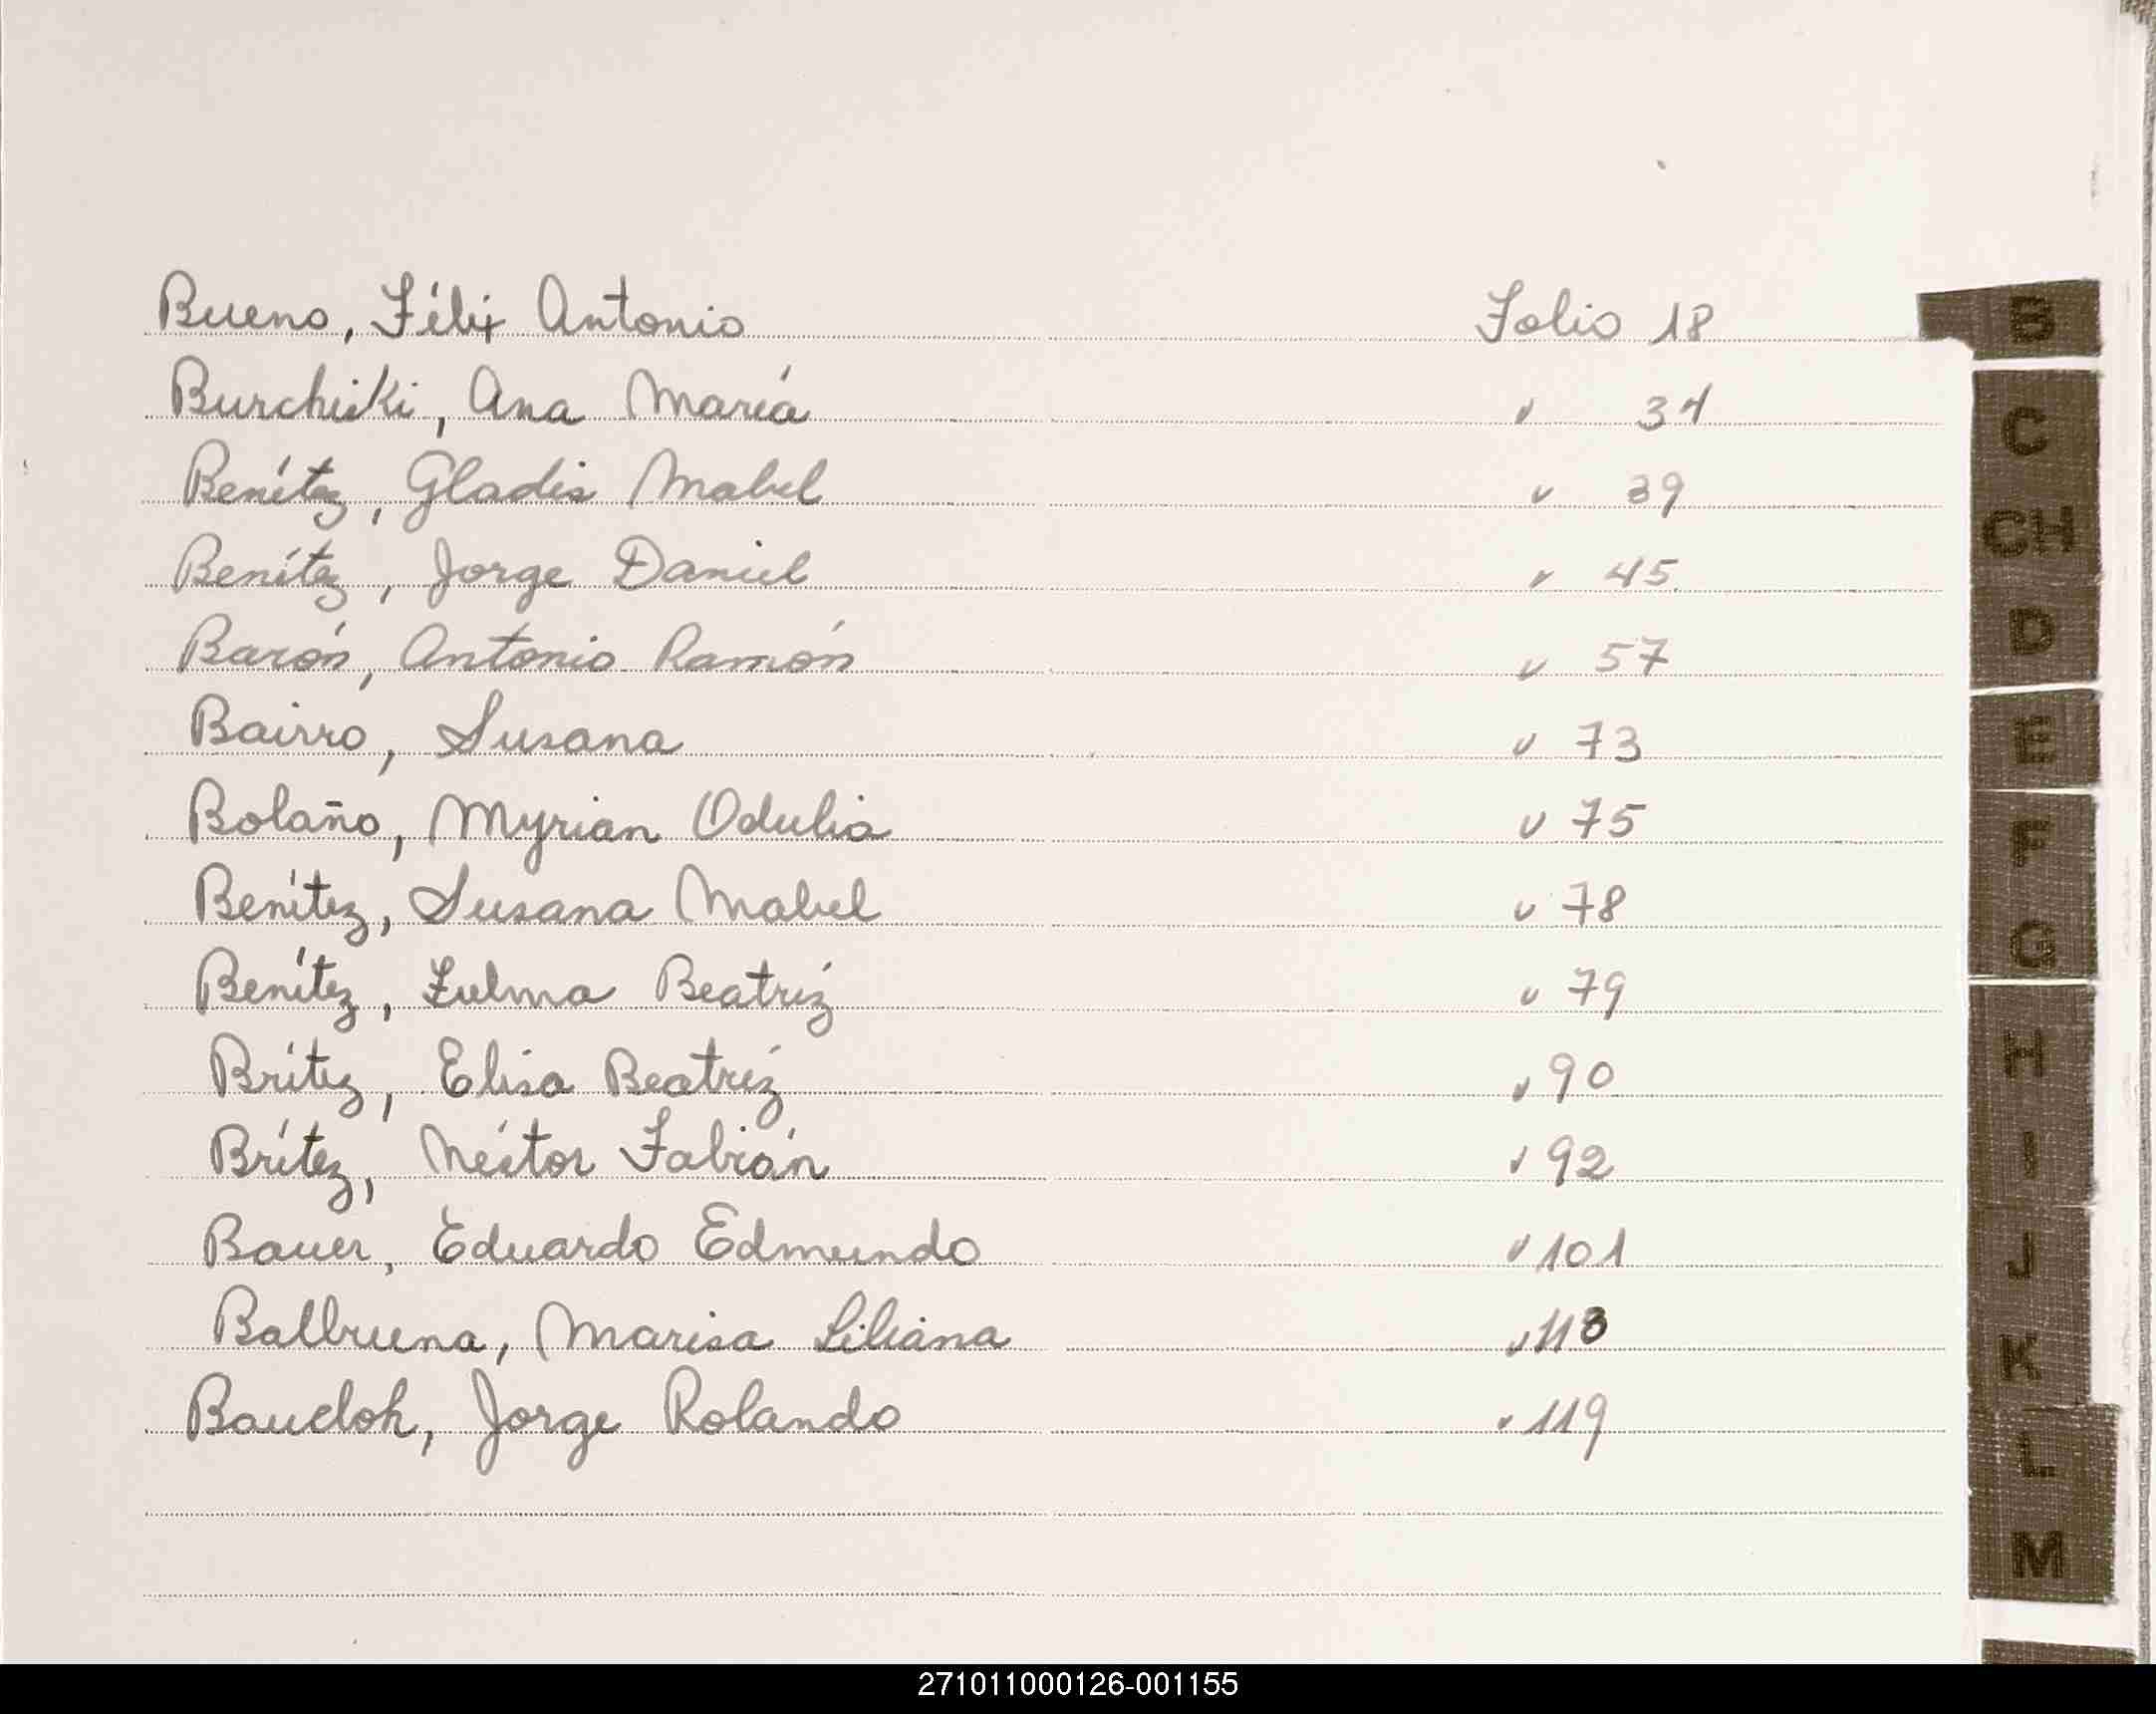 Bueno, Félix Antonio Folio 18
Burchiski, Ana María " 34
Benítez, Gladis Mabel " 39
Benítez, Jorge Daniel " 45
Barón, Antonio Ramón " 57
Bairro, Susana " 73
Bolaño, Myrian Odulia " 75
Benítez, Susana Mabel " 78
Benítez, Zulma Beatriz " 79
Brítez, Elisa Beatríz " 90
Brítez, Néstor Fabián " 92
Bauer, Eduardo Edmundo " 101
Balbuena, Marisa Liliana " 113
Jorge Rolando " 119
B
C
CH
D
E
F
G
H
I
J
K
L
M
271011000126-001155